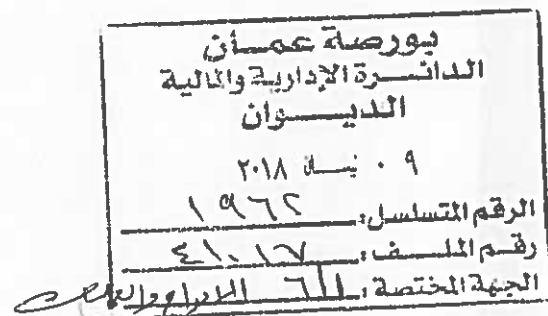 بورصة عمان
الدائرة الإدارية والمالية
الديوان
٠٩ نيسان ٢٠١٨
الرقم المتسلسل: ١٩٦٢
رقم الملف: ٤١٠١٧
الجهة المختصة: الادراج